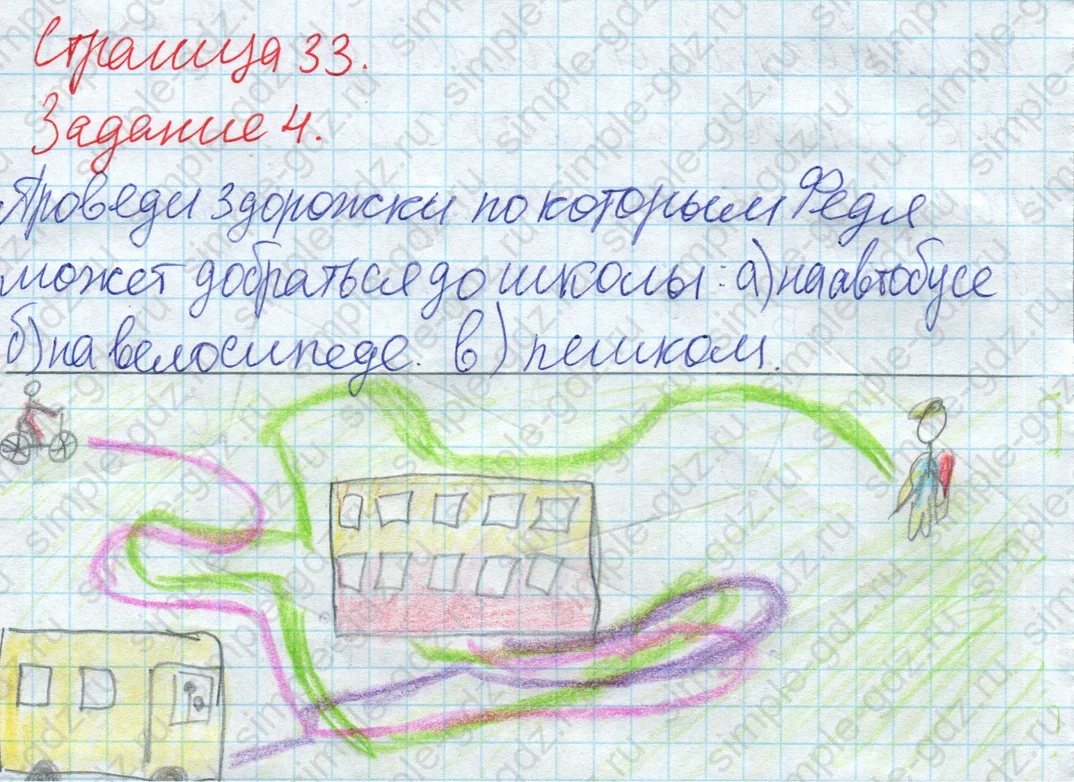 Страница 33.
Задание 4.
Проведи 3 дорожки по которым Федя
может добраться до школы: а) на автобусе
б) на велосипеде. в) пешком.
simple-gdz.ru